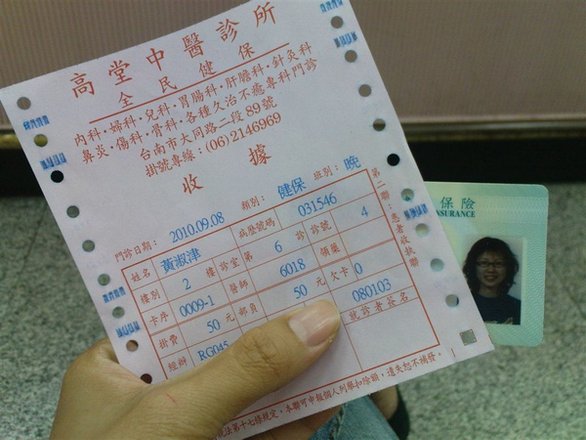 高堂中醫診所
全民健保
內科·婦科·兒科·胃腸科·肝膽科·針灸科
鼻炎·傷科·骨科·各種久治不癒專科門診
台南市大同路二段89號
掛號專線:(06)2146969
收據
門診日期: 2010.09.08 類別: 健保 班別: 晚
姓名 黃淑津 病歷號碼 031546
樓別 2 樓 診室 第 6 診 診號 4
卡序 0009-1 醫師 6018 領藥
掛費 50 元 部負 50 元 欠卡 0
經辦 RG045 080103 就診者簽名
第二聯:患者收執聯
法第十七條規定,本聯可申報個人列舉扣除額,遺失恕不補發。
保險
SURANCE